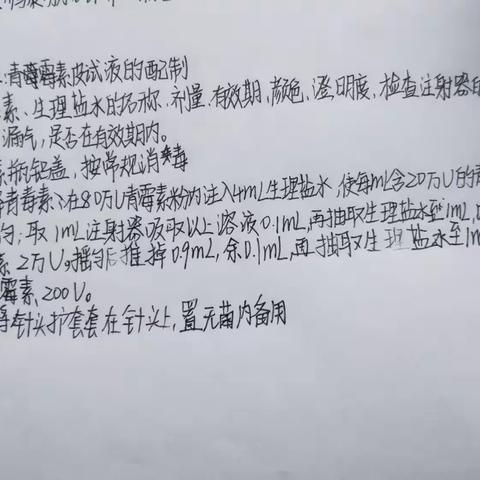 青霉素皮试液的配制
素、生理盐水的名称、剂量、有效期、颜色、澄明度、检查注射器的
漏气,是否在有效期内。
素瓶铝盖,按常规消毒
青毒素:在80万U青霉素粉内注入4mL生理盐水,使每mL含20万U的
匀;取1mL注射器吸取以上溶液0.1mL,再抽取生理盐水至1mL,
素2万U。摇匀后推掉0.9mL,余0.1mL,再抽取生理盐水至1m
霉素200U。
将针头护套套在针头上,置无菌内备用